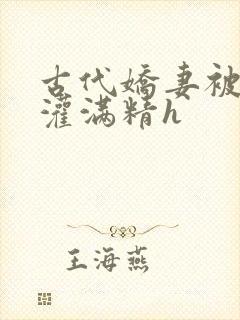 古代嬌妻被
灌滿精h
王海燕